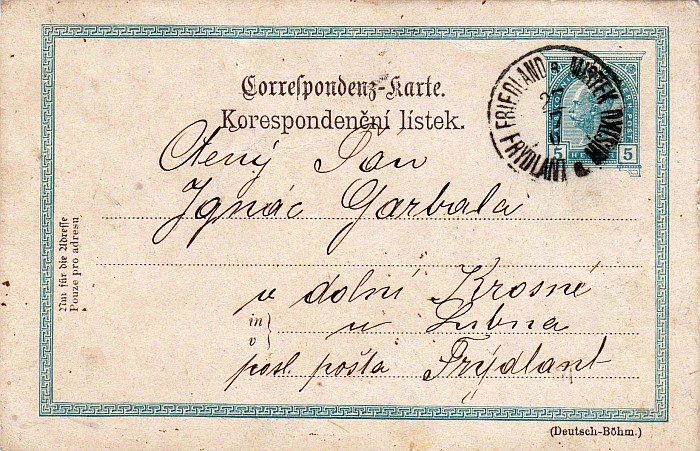 Correspondenz-Karte.
Korespondenční lístek.
FRIEDLAND MISTEK
FRÝDLANT
5 HELLER 5
Ctený Pán
Ignác Garbala
v dolní Krosné
in
v
u Lubna
posl. pošta Frýdlant
Nur für die Adresse
Pouze pro adresu
(Deutsch-Böhm.)